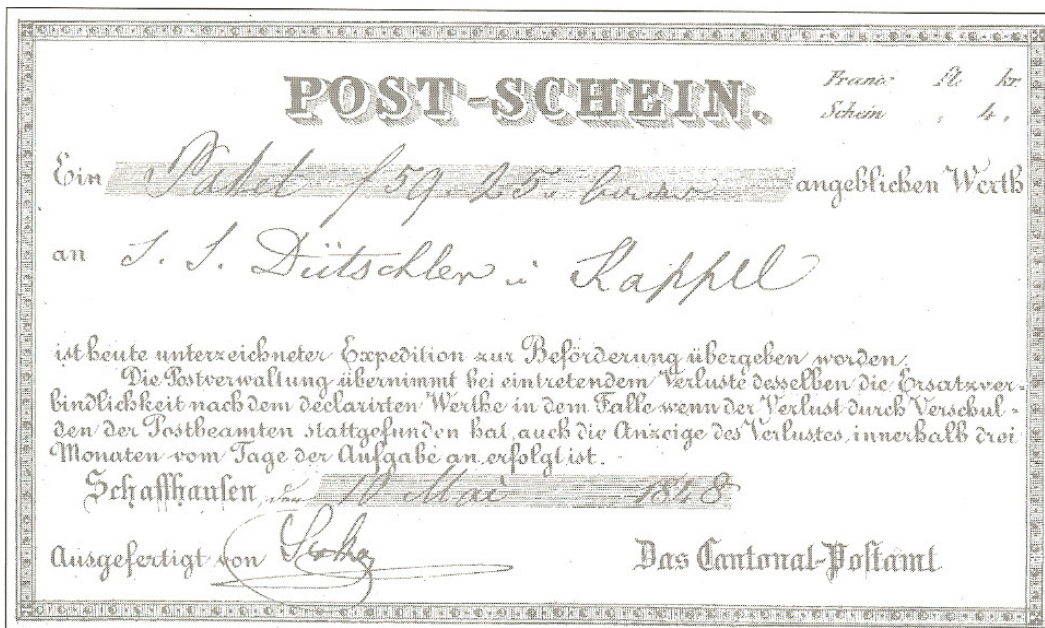 POST-SCHEIN.
Franco: fl. kr.
Schein „ 4.
Ein Paket f 59. 25. angeblichen Werth
an J. J. Dütschler i Kappel
ist heute unterzeichneter Expedition zur Beförderung übergeben worden.
Die Postverwaltung übernimmt bei eintretendem Verluste desselben die Ersatzver-
bindlichkeit nach dem declarirten Werthe in dem Falle wenn der Verlust durch Verschul-
den der Postbeamten stattgefunden hat, auch die Anzeige des Verlustes, innerhalb drei
Monaten vom Tage der Aufgabe an, erfolgt ist.
Schaffhausen den 10 Mai 1848
Ausgefertigt von
Das Cantonal-Postamt